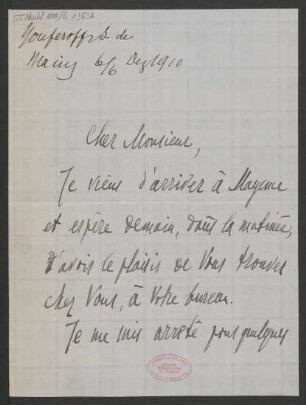 Mainz 6/6 Dez 1910
Cher Monsieur,
Je viens d'arriver à Mayence
et espère demain, dans la matinée,
d'avoir le plaisir de Vous trouver
chez Vous, à Votre bureau.
Je me suis arrêté pour quelques